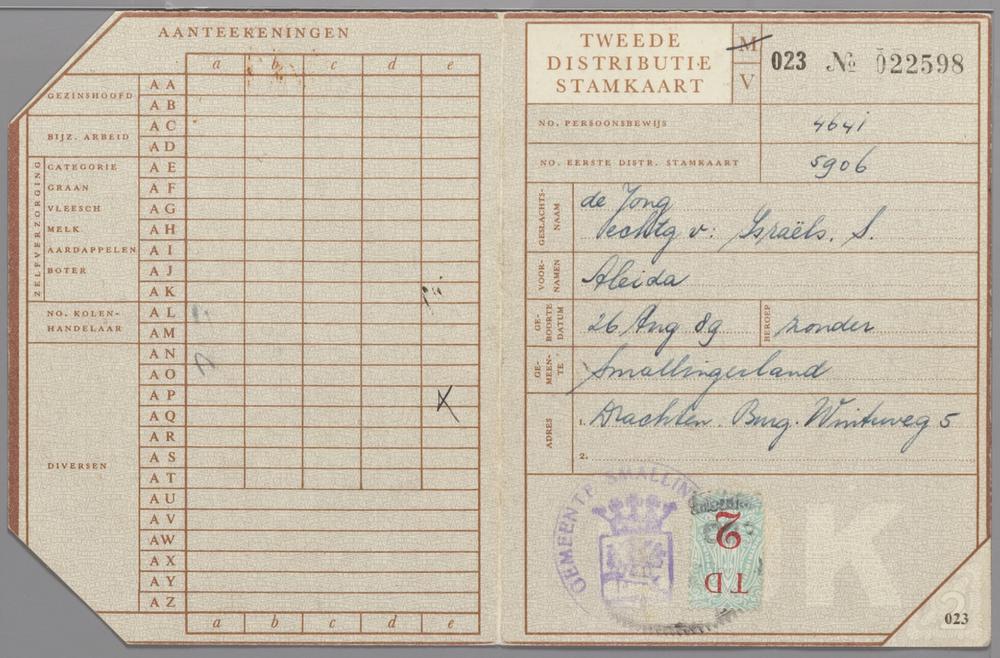 AANTEEKENINGEN
a b c d e
GEZINSHOOFD
A A
A B
BIJZ. ARBEID
A C
A D
ZELFVERZORGING
CATEGORIE A E
GRAAN A F
VLEESCH A G
MELK A H
AARDAPPELEN A I
BOTER A J
A K
NO. KOLEN-
HANDELAAR
A L
A M
A N
A O
A P
A Q
A R
A S
DIVERSEN
A T
A U
A V
A W
A X
A Y
A Z
a b c d e
TWEEDE
DISTRIBUTIE
STAMKAART
M
V
023 № 022598
NO. PERSOONSBEWIJS 4641
NO. EERSTE DISTR. STAMKAART 5906
GESLACHTS-
NAAM
de Jong
echtg v: Israëls. S.
VOOR-
NAMEN
Aleida
GE-
BOORTE
DATUM
26 Aug 89
BEROEP
zonder
GE-
MEEN-
TE
Smallingerland
ADRES
1. Drachten. Burg. Wuiteweg 5
2.
GEMEENTE SMALLIN
TD
2
023